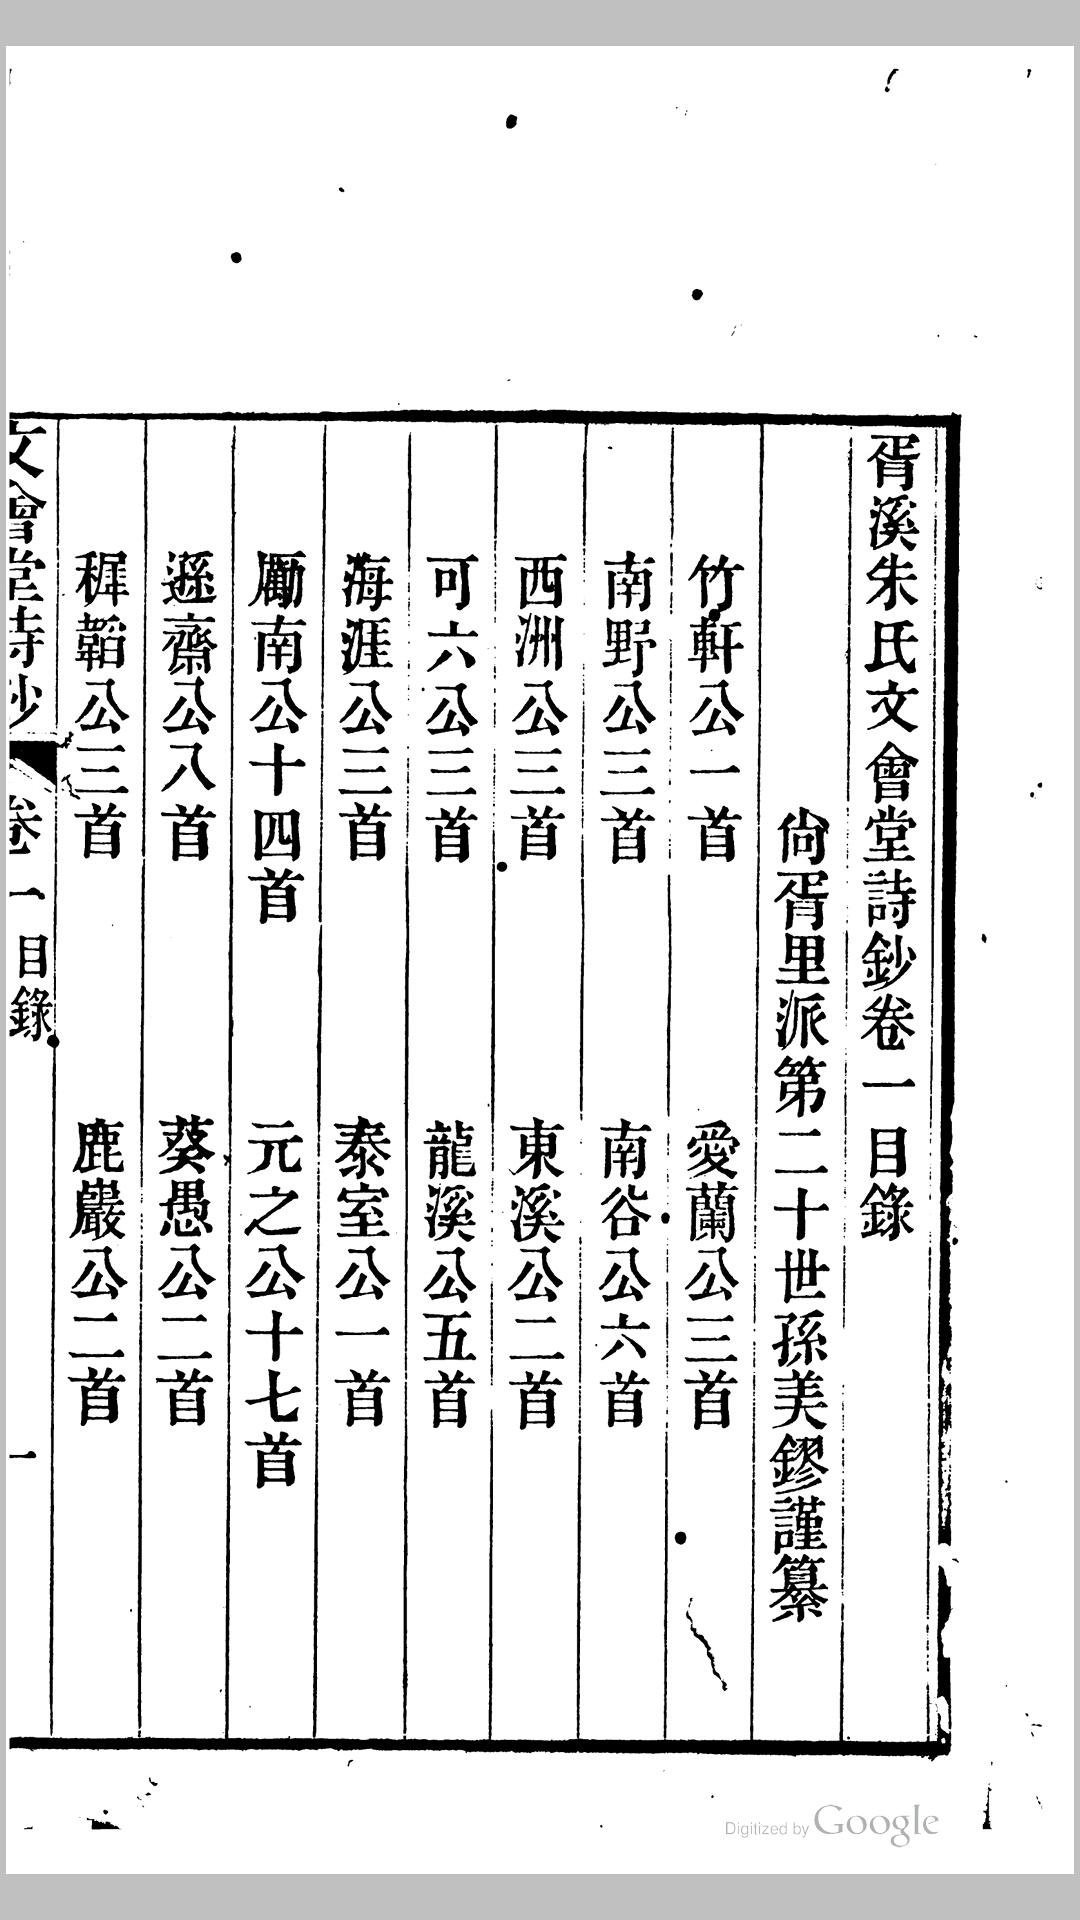 胥溪朱氏文會堂詩鈔卷一目錄
尙胥里派第二十世孫美鏐謹纂
竹軒公一首　愛蘭公三首
南野公三首　南谷公六首
西洲公三首　東溪公二首
可六公三首　龍溪公五首
海涯公三首　泰室公一首
勵南公十四首　元之公十七首
遜齋公八首　葵愚公二首
穉韜公三首　鹿巖公二首
文會堂詩鈔　卷一　目錄　一
Digitized by Google